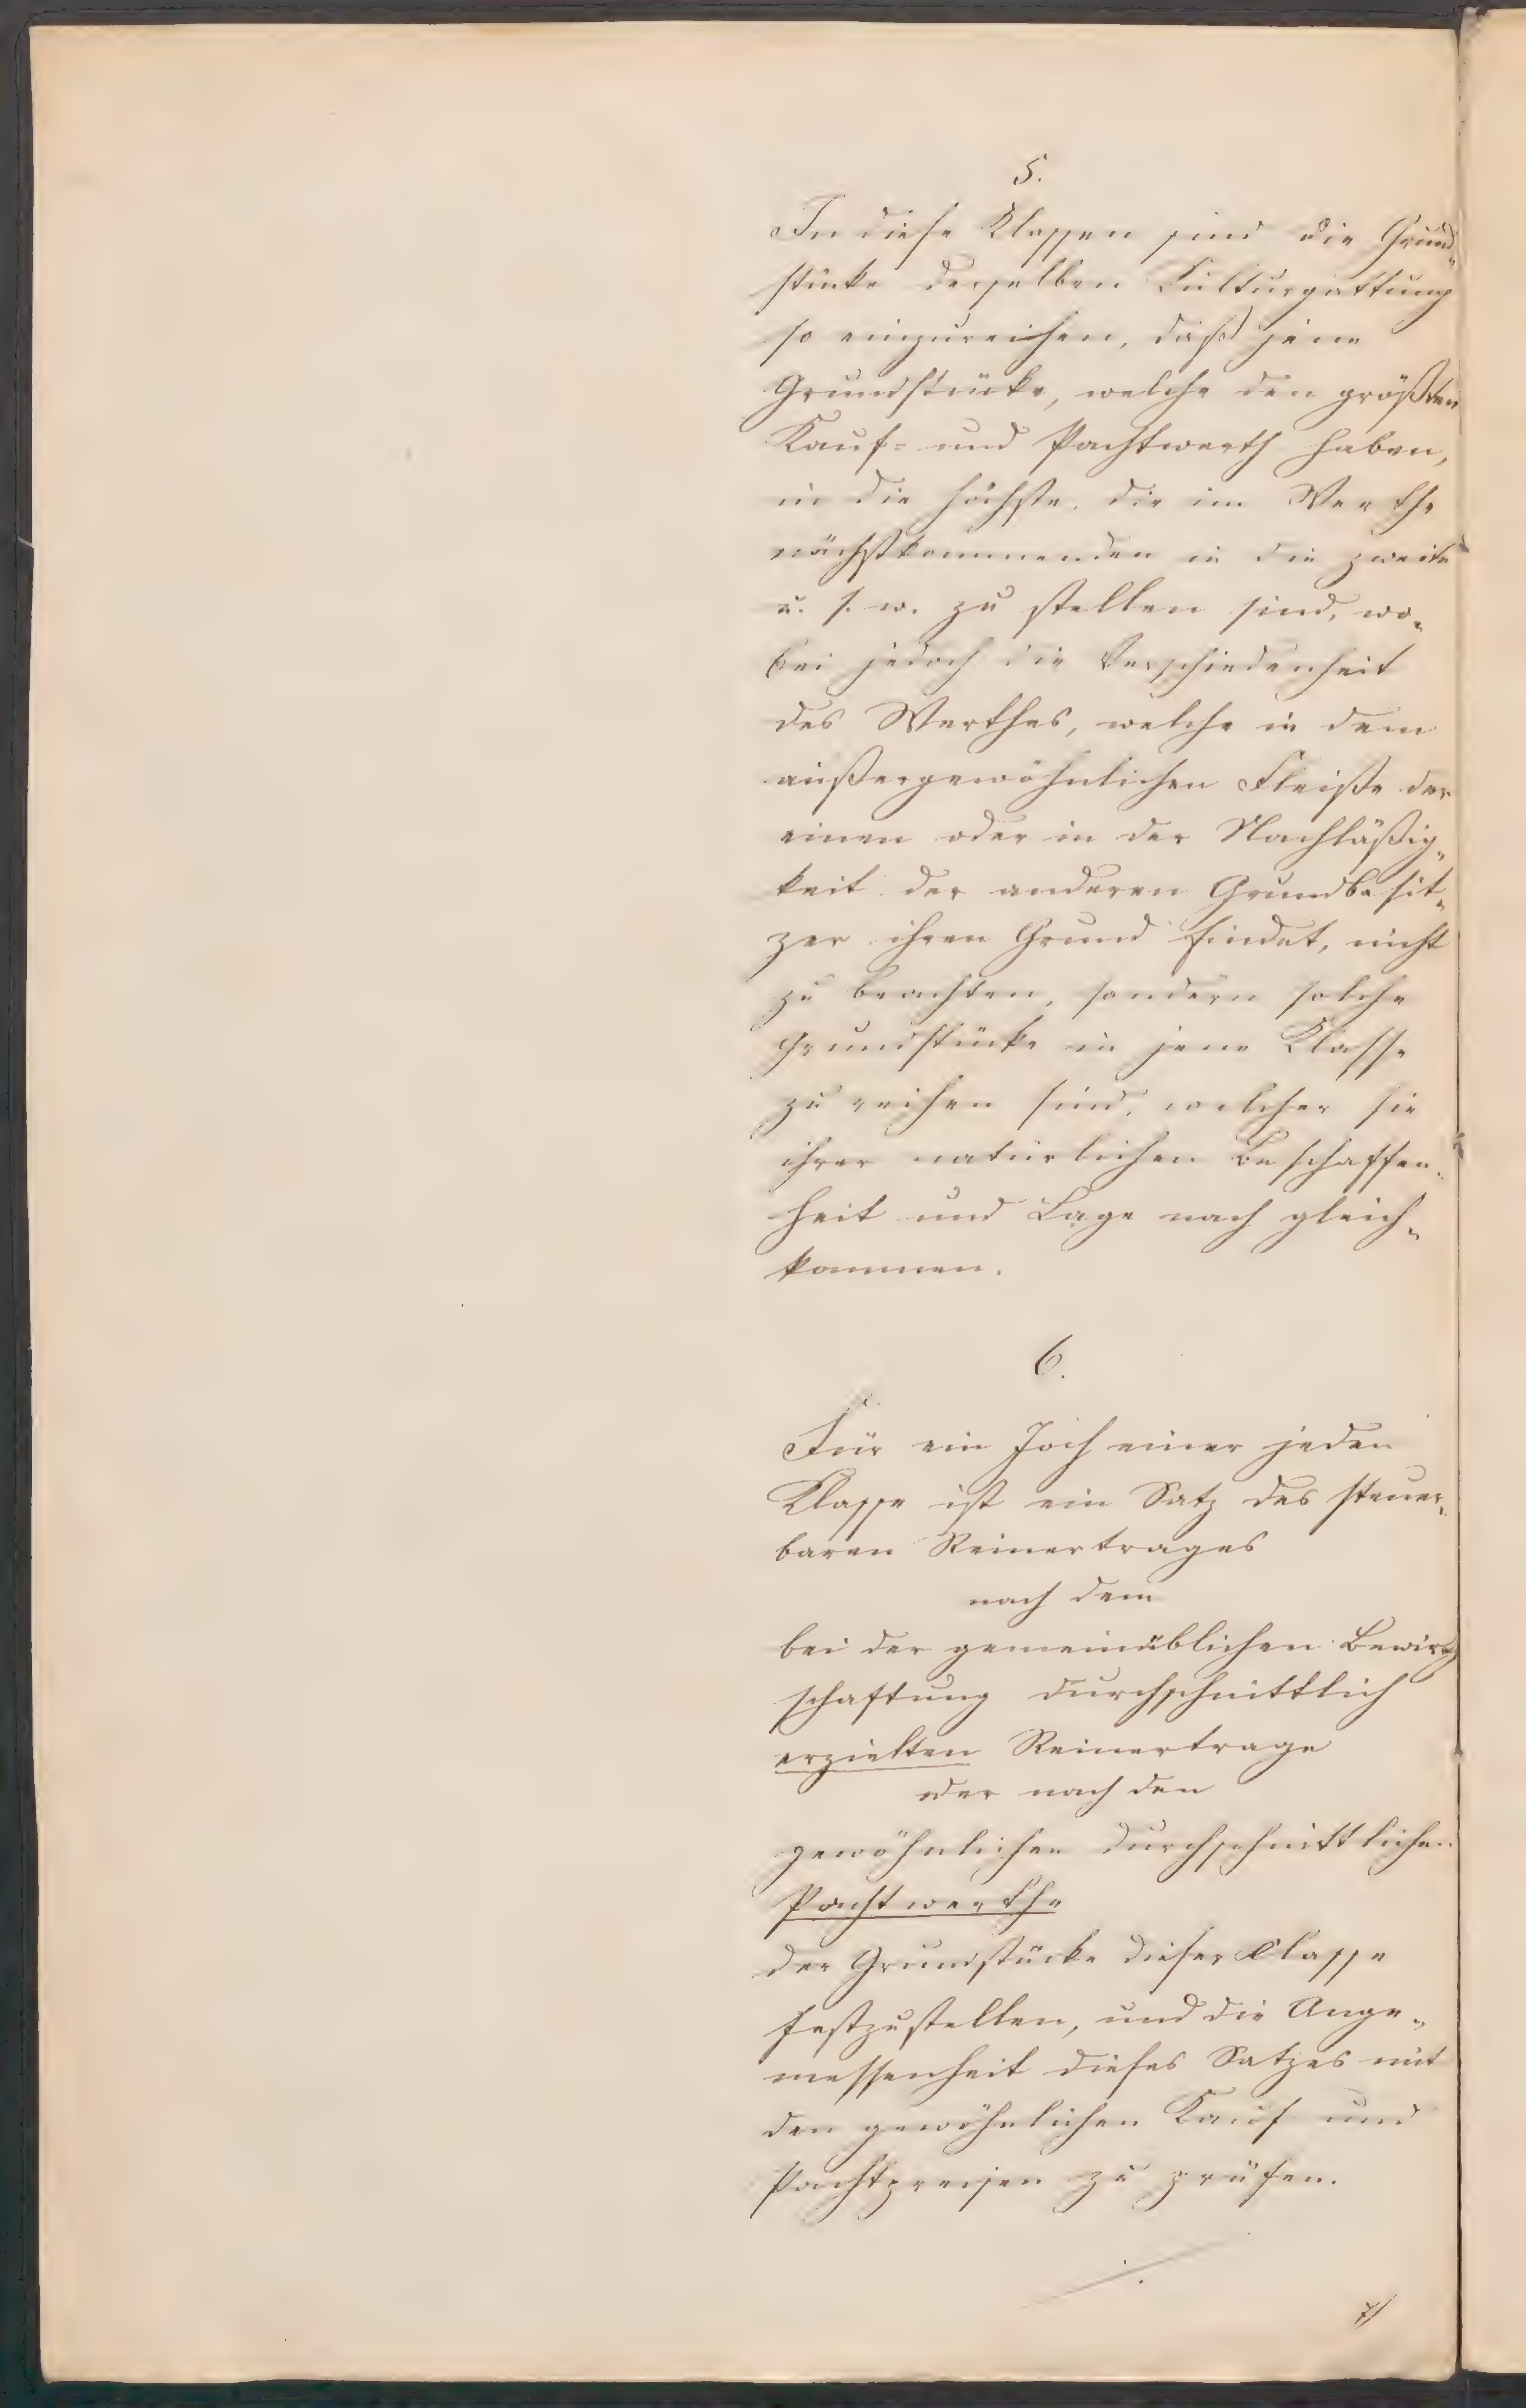 5.
In diese Klassen sind die Grund„
stücke derselben Kulturgattung
so einzureihen, daß jene
Grundstücke, welche den größten
Kauf= und Pachtwerth haben,
in die höchste, die im Werthe
nächstkommenden in die zweite
u. s. w. zu stellen sind, wo„
bei jedoch die Verschiedenheit
des Werthes, welche in dem
außergewöhnlichen Fleiße der
einen oder in der Nachläßig„
keit der anderen Grundbesit„
zer ihren Grund findet, nicht
zu beachten, sondern solche
Grundstücke in jene Klasse
zu reihen sind, welcher sie
ihrer natürlichen Beschaffen„
heit und Lage nach gleich„
kommen.
6.
Für ein Joch einer jeden
Klasse ist ein Satz des steuer„
baren Reinertrages
nach dem
bei der gemeinüblichen Bewirth
schaftung durchschnittlich
erzielten Reinertrage
oder nach den
gewöhnlichen durchschnittlichen
Pachtwerthe
der Grundstücke dieser Classe
festzustellen, und die Ange„
messenheit dieses Satzes mit
den gewöhnlichen Kauf und
Pachtpreisen zu prüfen.
./.
7/